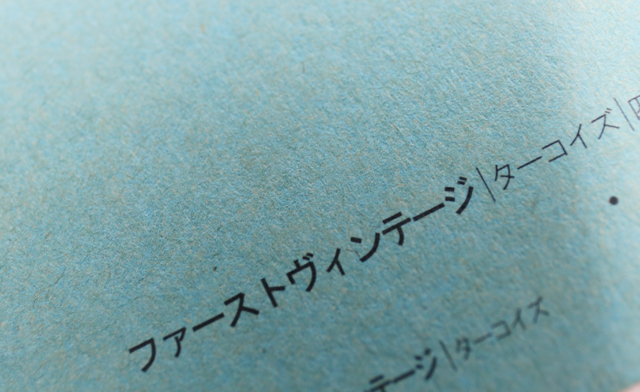 ファーストヴィンテージ|ターコイズ|四
テージ|ターコイズ